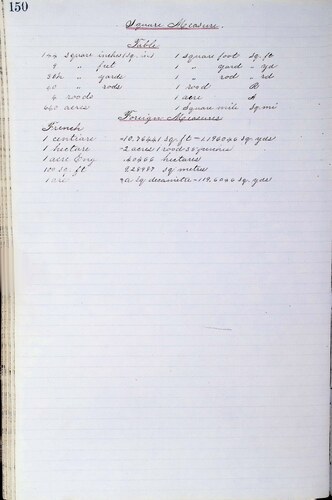 150
Square Measure.
Table
144 square inches (sq. in) 1 square foot sq. ft
9 " feet 1 " yard " yd
30¼ " yards 1 " rod " rd
40 " rods 1 rood R
4 roods 1 acre A
640 acres 1 square mile sq. mi
Foreign Measures
French
1 centiare 10.76441 sq. ft = 1.196046 sq. yds
1 hectare = 2 acres 1 rood
1 acre Eng .40466 hectares
100 sq. ft sq. metres
1 are sq decametre = 119.6046 sq. yds